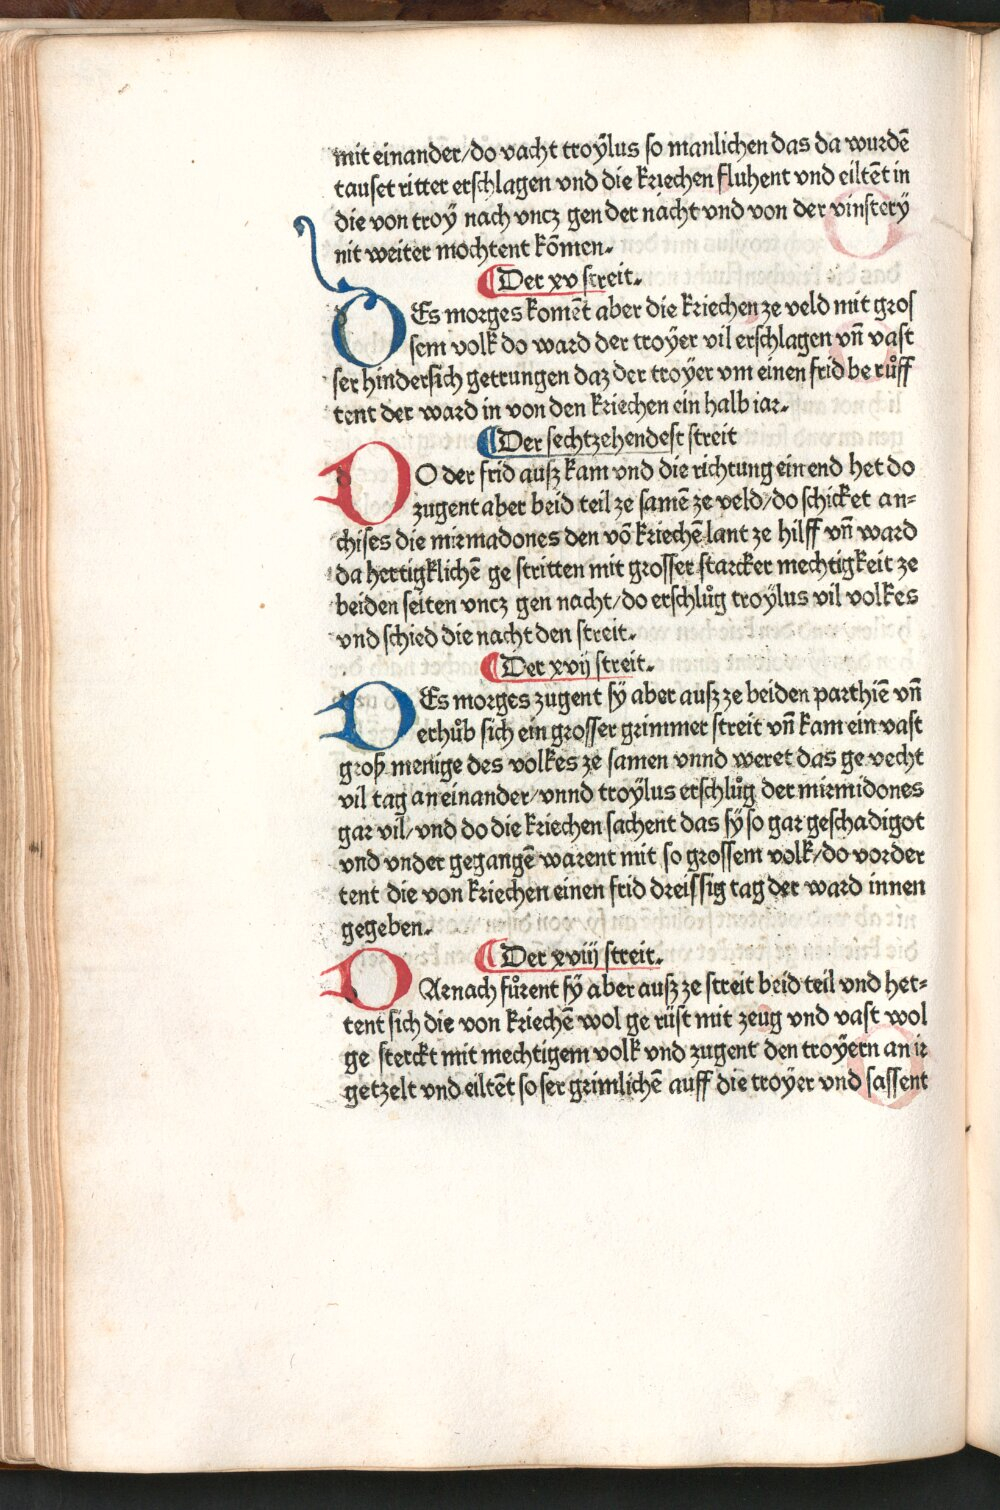 mit einander/do vacht troÿlus so manlichen das da wurdē
tauset ritter erschlagen vnd die kriechen fluhent vnd eiltēt in
die von troÿ nach vncz gen der nacht vnd von der vinsterÿ
nit weiter mochtent kōmen.
¶Der xv streit.
DEs morges komēt aber die kriechen ze veld mit gros
sem volk do ward der troÿer vil erschlagen vn̄ vast
ser hindersich getrungen daz der troÿer vm einen frid be růff
tent der ward in von den kriechen ein halb iar.
¶Der sechtzehendest streit
DO der frid ausz kam vnd die richtung ein end het do
zugent aber beid teil ze samē ze veld/do schicket an⸗
chises die mirmadones den vō kriechē lant ze hilff vn̄ ward
da hertigklichē ge stritten mit grosser starcker mechtigkeit ze
beiden seiten vncz gen nacht/do erschlůg troÿlus vil volkes
vnd schied die nacht den streit.
¶Der xvij streit.
DEs morges zugent sÿ aber ausz ze beiden parthiē vn̄
erhůb sich ein grosser grimmer streit vn̄ kam ein vast
groß menige des volkes ze samen vnnd weret das ge vecht
vil tag an einander/vnnd troÿlus erschlůg der mirmidones
gar vil/vnd do die kriechen sachent das sÿ so gar geschadigot
vnd vnder gegangē warent mit so grossem volk/do vorder
tent die von kriechen einen frid dreissig tag der ward innen
gegeben.
¶Der xviij streit.
DArnach fůrent sÿ aber ausz ze streit beid teil vnd het⸗
tent sich die von kriechē wol ge rüst mit zeug vnd vast wol
ge sterckt mit mechtigem volk vnd zugent den troÿern an ir
getzelt vnd eiltēt so ser grimlichē auff die troÿer vnd sassent